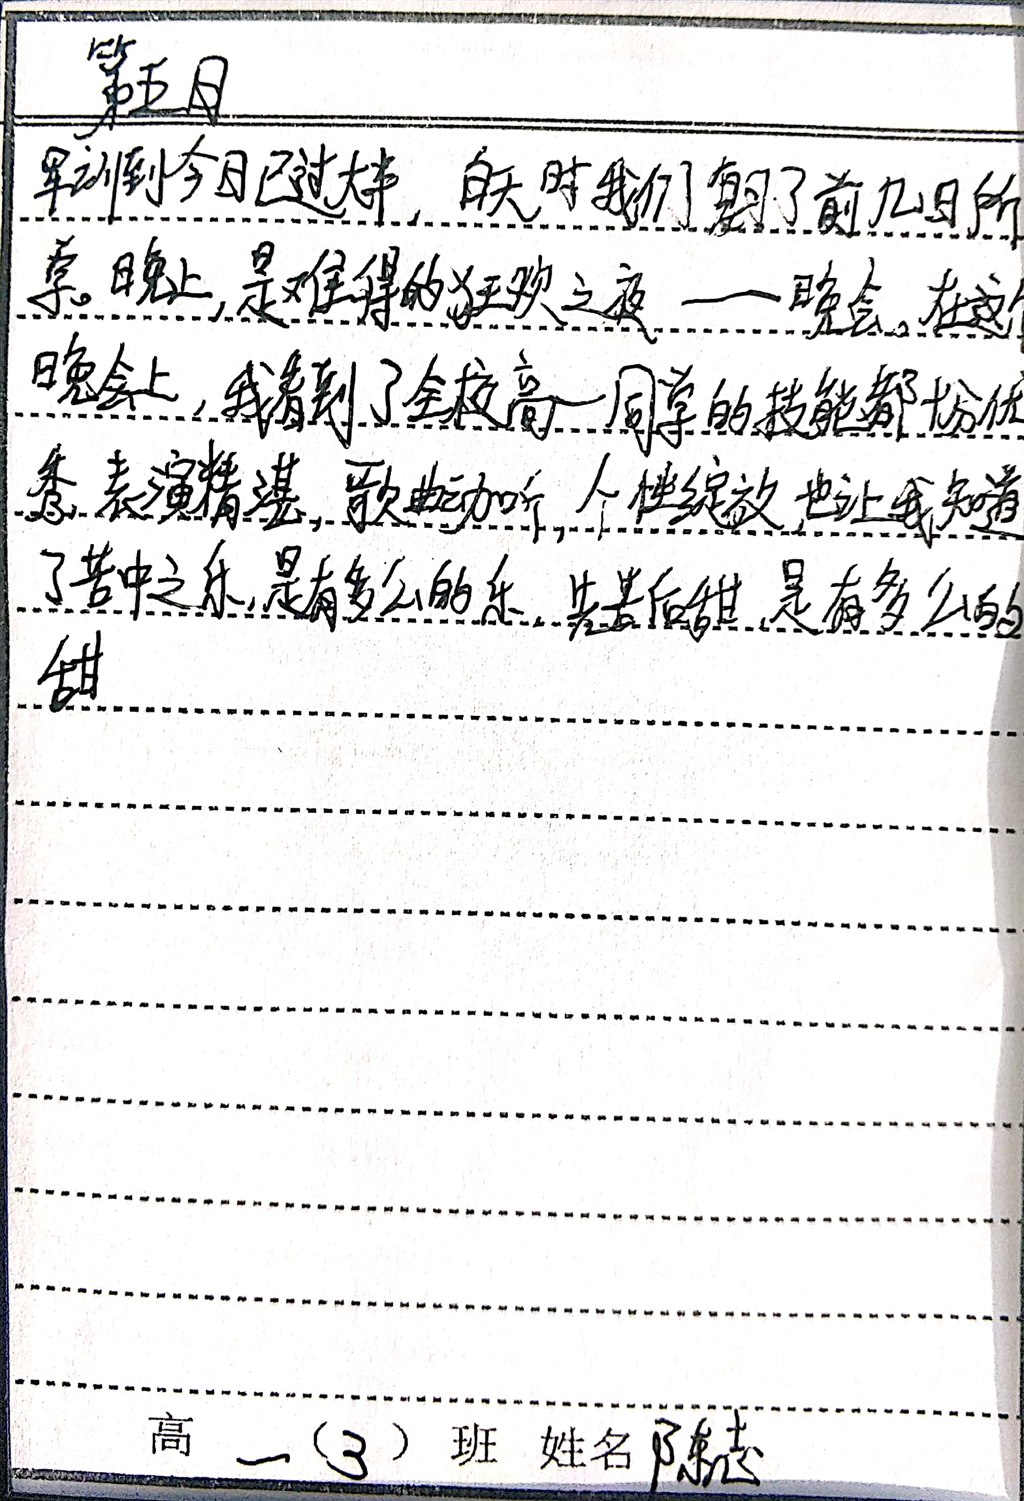 第五日
军训到今日已过大半，白天时我们复习了前几日所
学。晚上，是难得的狂欢之夜——晚会。在这个
晚会上，我看到了全校高一同学的技能都十分优
秀，表演精湛，歌曲动听，个性绽放，也让我知道
了苦中之乐，是有多么的乐，先苦后甜，是有多么的
甜
高一（3）班 姓名 陈志